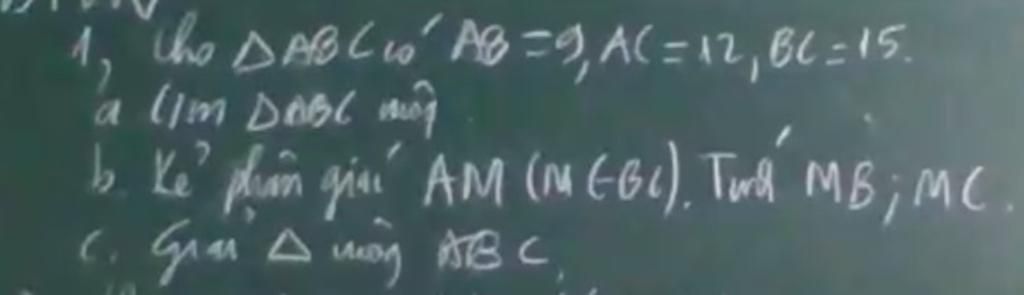 1, Cho △ABC có AB = 9, AC = 12, BC = 15.
a C/m △ABC vuông
b. Kẻ phân giác AM (M ∈ BC). Tính MB; MC.
c. Giải △ vuông ABC.